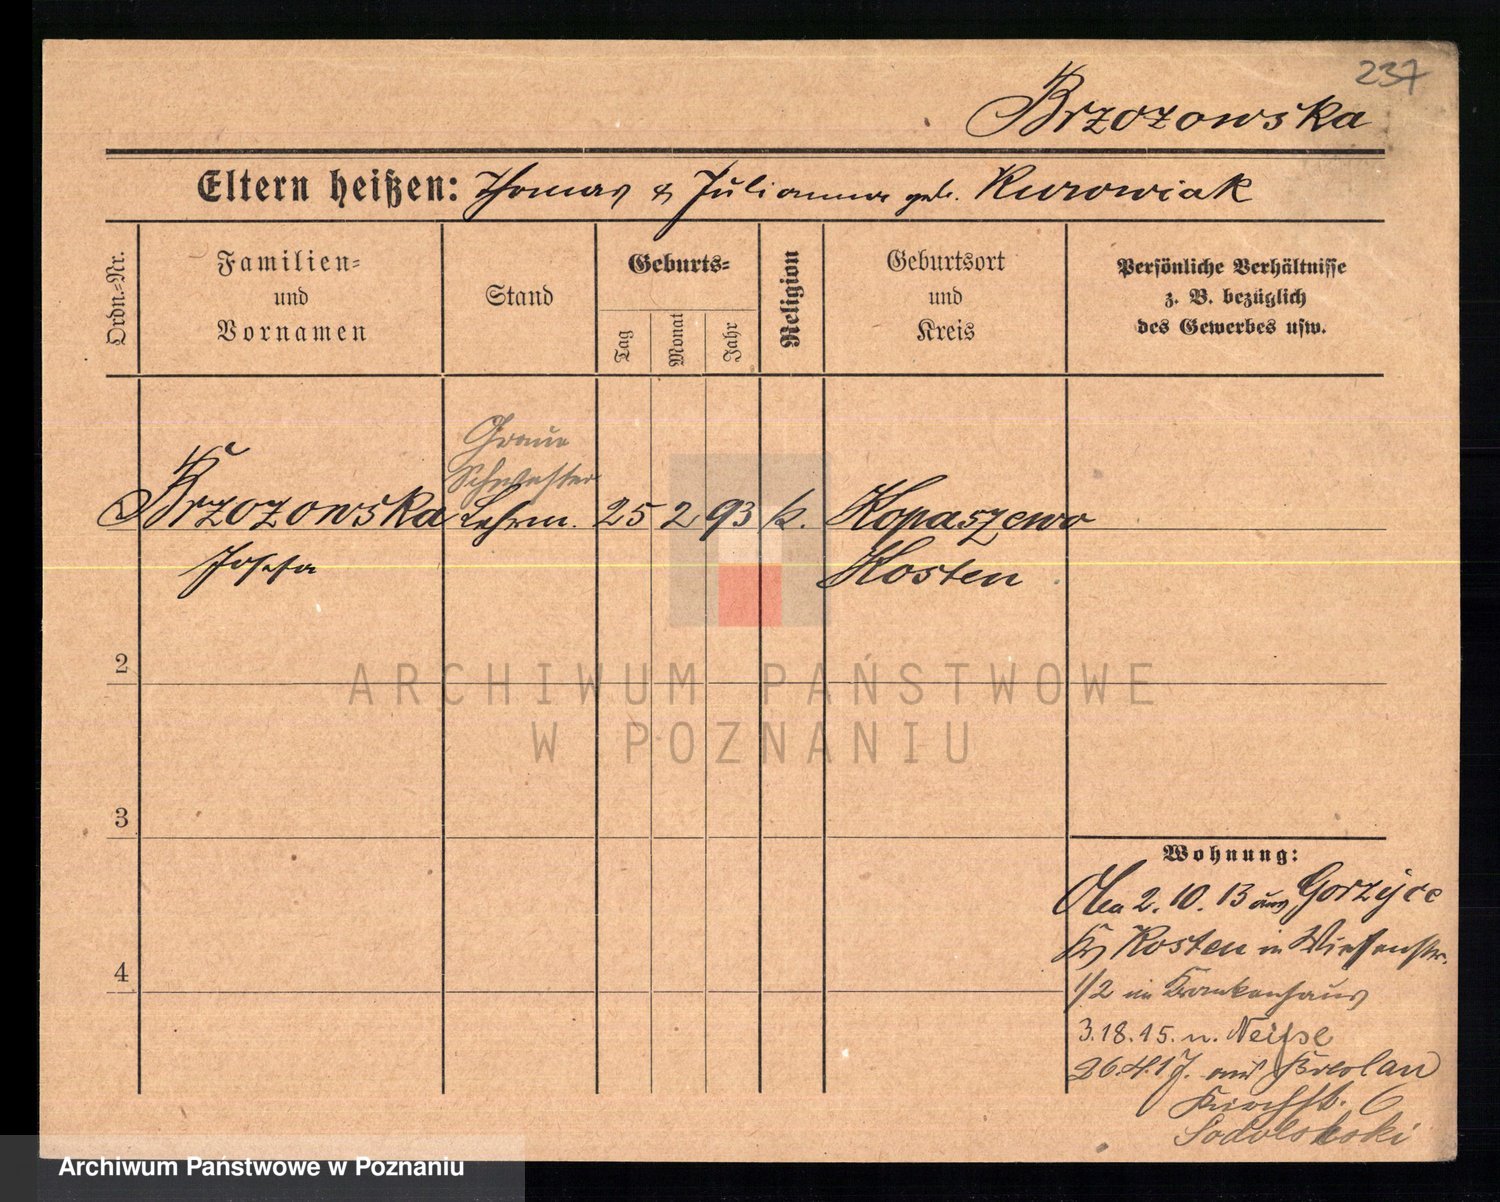 237
Brzozowska
Eltern heißen: Thomas & Julianna geb. Kurowiak
Ordn.-Nr.
Familien-
und
Vornamen
Stand
Geburts-
Tag
Monat
Jahr
Religion
Geburtsort
und
Kreis
Persönliche Verhältnisse
z. B. bezüglich
des Gewerbes usw.
Graue
Schwester
Brzozowska Lehrin. 25 2 93 k. Kopaszewo
Josefa Kosten
2
3
4
Wohnung:
2.10.13 aus Gorzyce
Kr Kosten in Wiesenstr.
1/2 im Krankenhaus
3.18.15. n. Neisse
26.4.17. aus Breslau
6
ARCHIWUM PAŃSTWOWE
W POZNANIU
Archiwum Państwowe w Poznaniu